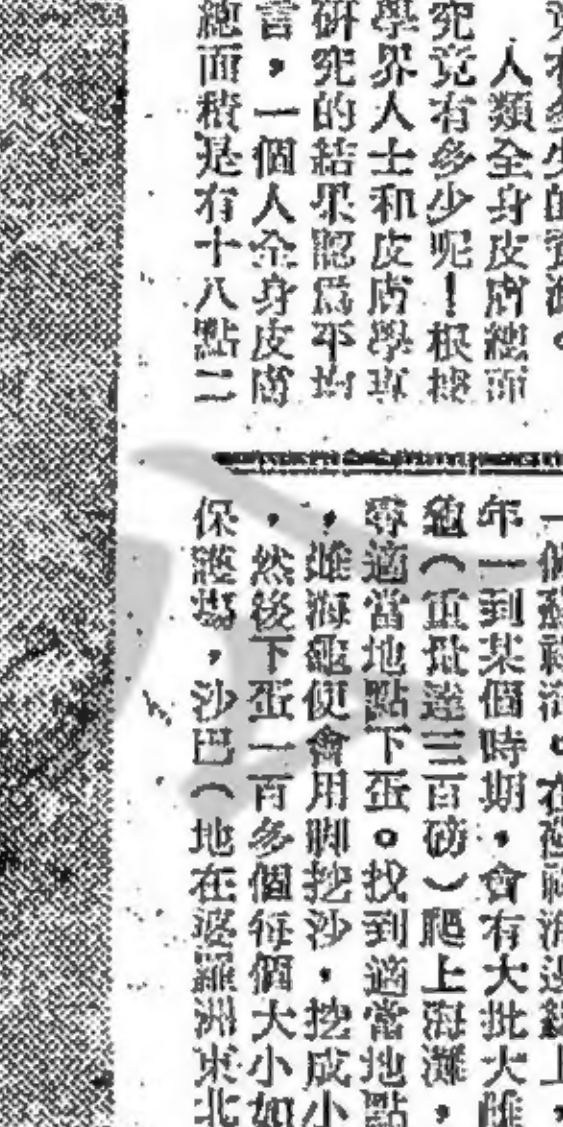 人類全身皮膚總面
究竟有多少呢！根據
學界人士和皮膚學專
研究的結果認爲平均
言，一個人全身皮膚
總面積是有十八點二
年一到某個時期，會有大批大雌
龜（重量達三百磅）爬上海灘，
尋適當地點下蛋。找到適當地點
，雌海龜便會用脚挖沙，挖成小
，然後下蛋一百多個每個大小如
保護場，沙巴（地在婆羅洲東北